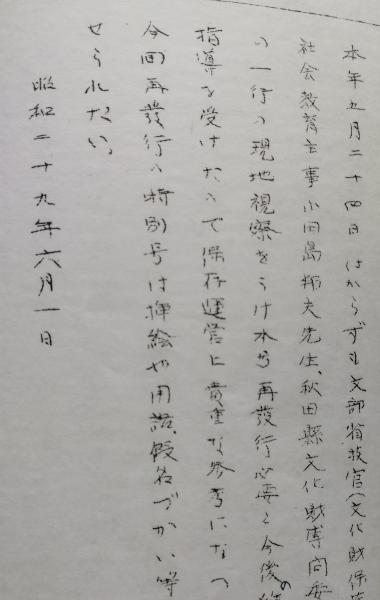 本年五月二十四日はからずも文部省技官(文化財保
社会教育主事小田島邦夫先生、秋田縣文化財専門委
の一行の現地視察をうけ本号再發行必要と今後の
指導を受けたので保存運営に貴重な参考になつ
今回再發行の特別号は挿絵や用語、假名づかい等
せられたい。
昭和二十九年六月一日